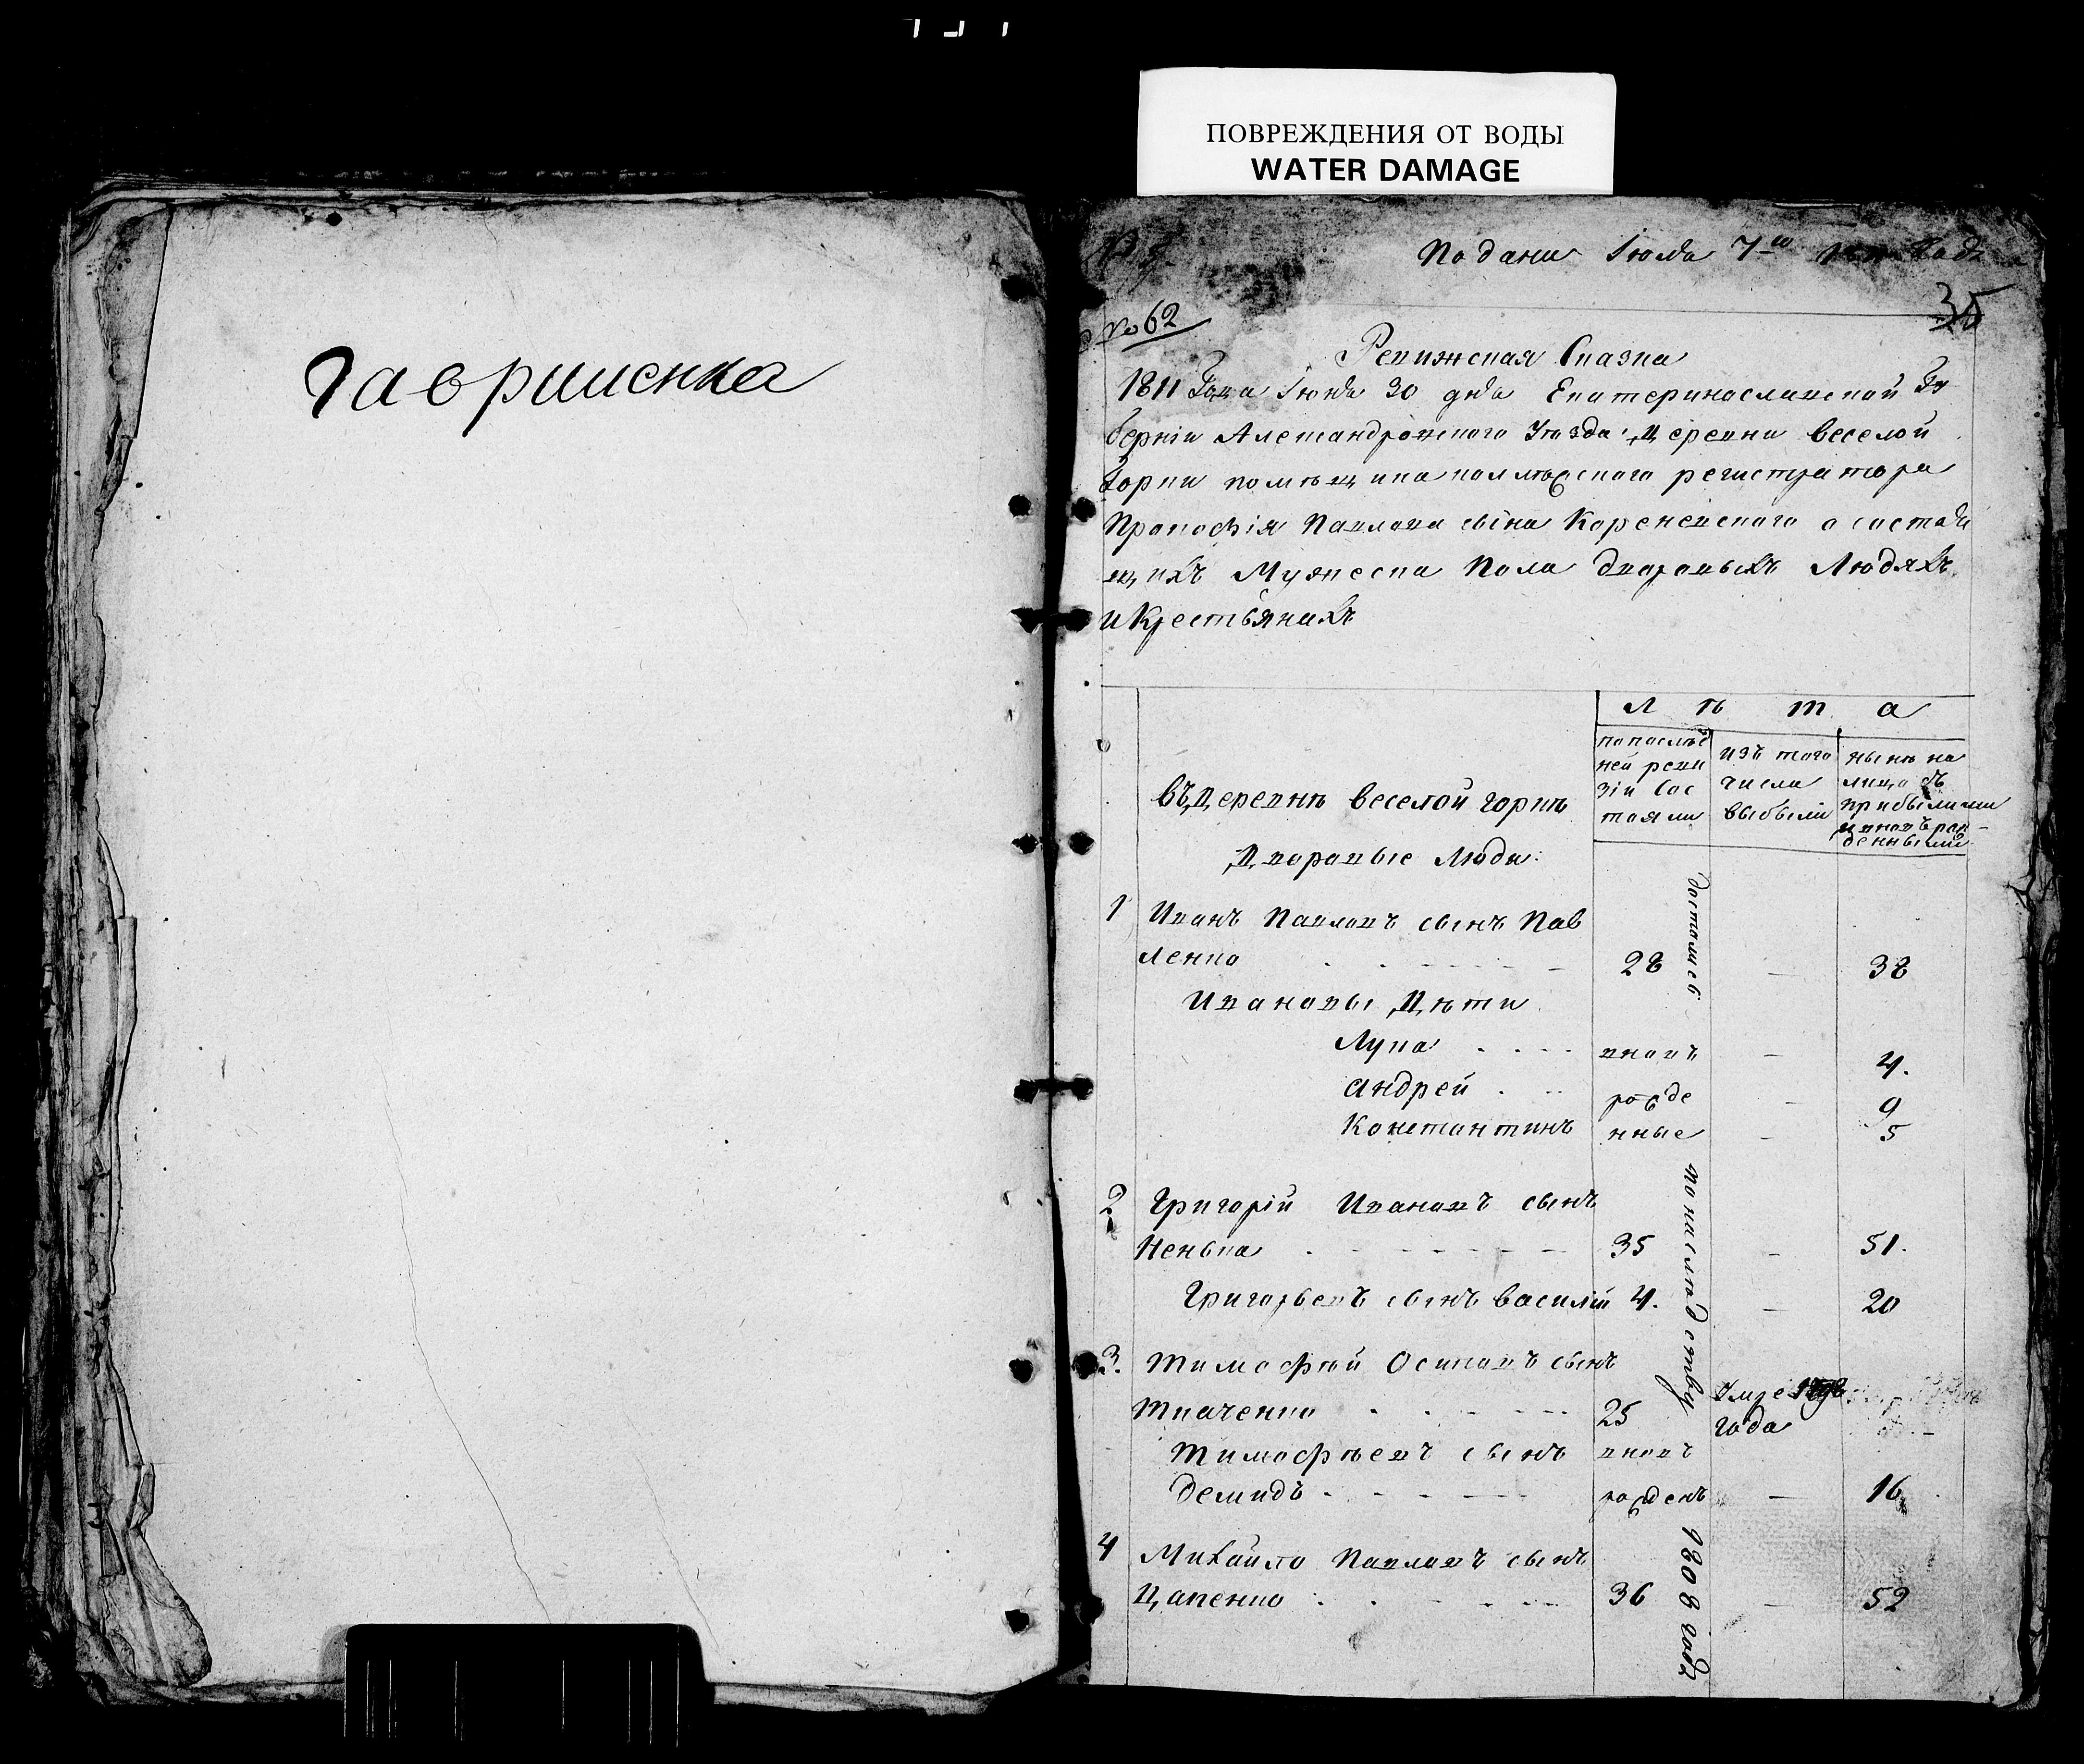 ПОВРЕЖДЕНИЯ ОТ ВОДЫ
WATER DAMAGE
Гавришенка
Подана Іюля 7го
35
№ 62
Ревижская Сказка
1811 Года Іюня 30 дня Екатеринославской Гу
берніи Александровского Уезда Деревни веселой
Горки помѣщика коллѣжского регистратора
Прокофія Павлова сына Кореневского о состоя
щихъ Мужеска Пола дворовыхъ Людяхъ
и Крестьянахъ
Л ѣ т а
въ Деревнѣ веселой горкѣ
Дворовые Люди:
попослѣд
ней реви
зіи сос
тояли
изъ того
числа
выбыли
нынѣ на
лицо съ
прибылими
и вновь рож-
денными
1 Иванъ Павловъ сынъ Пав
ленко 28 — 38
Ивановы Дѣти
Лука вновь — 4.
Андрей рожде — 9
Констонтинъ нные — 5
2 Григорій Ивановъ сынъ
Ненька 35 — 51.
Григорьевъ сынъ василій 4. — 20
3. Тимофѣй Осиповъ сынъ
Ткаченко 25 Умре
года
Тимофѣевъ сынъ вновь
демидъ рожденъ — 16
4 Михайло Павловъ сынъ
Цапенко 36 — 52
достались
по наследству
1808 года